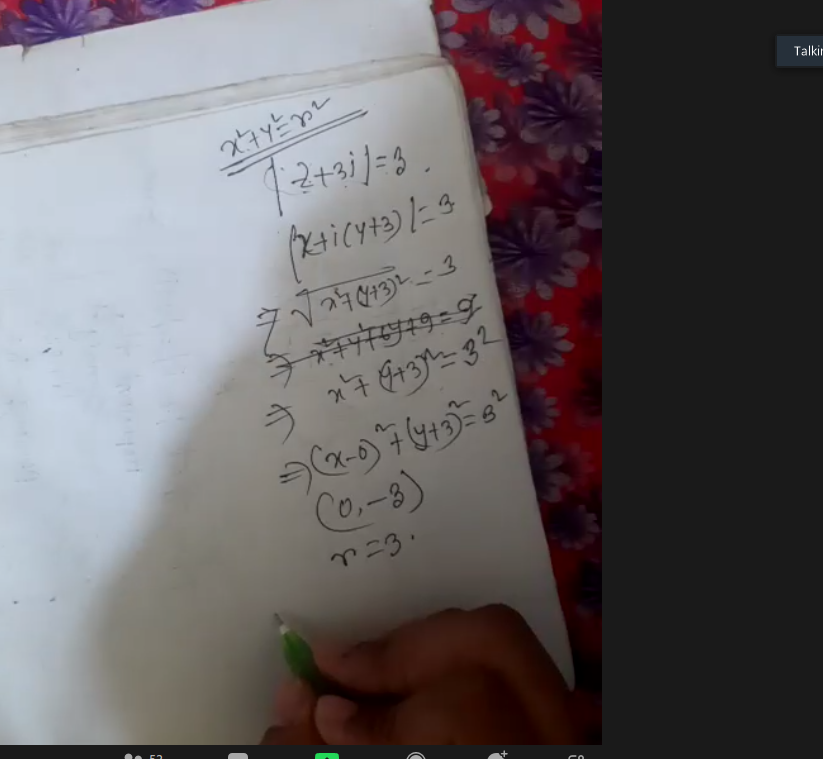 x²+y²=r²
|z+3i|=3.
|x+i(y+3)|=3
⇒ √x²+(y+3)² = 3
⇒ x²+y²+6y+9=9
⇒ x²+(y+3)²=3²
⇒ (x-0)²+(y+3)²=3²
(0,-3)
r=3.
Talkin
52